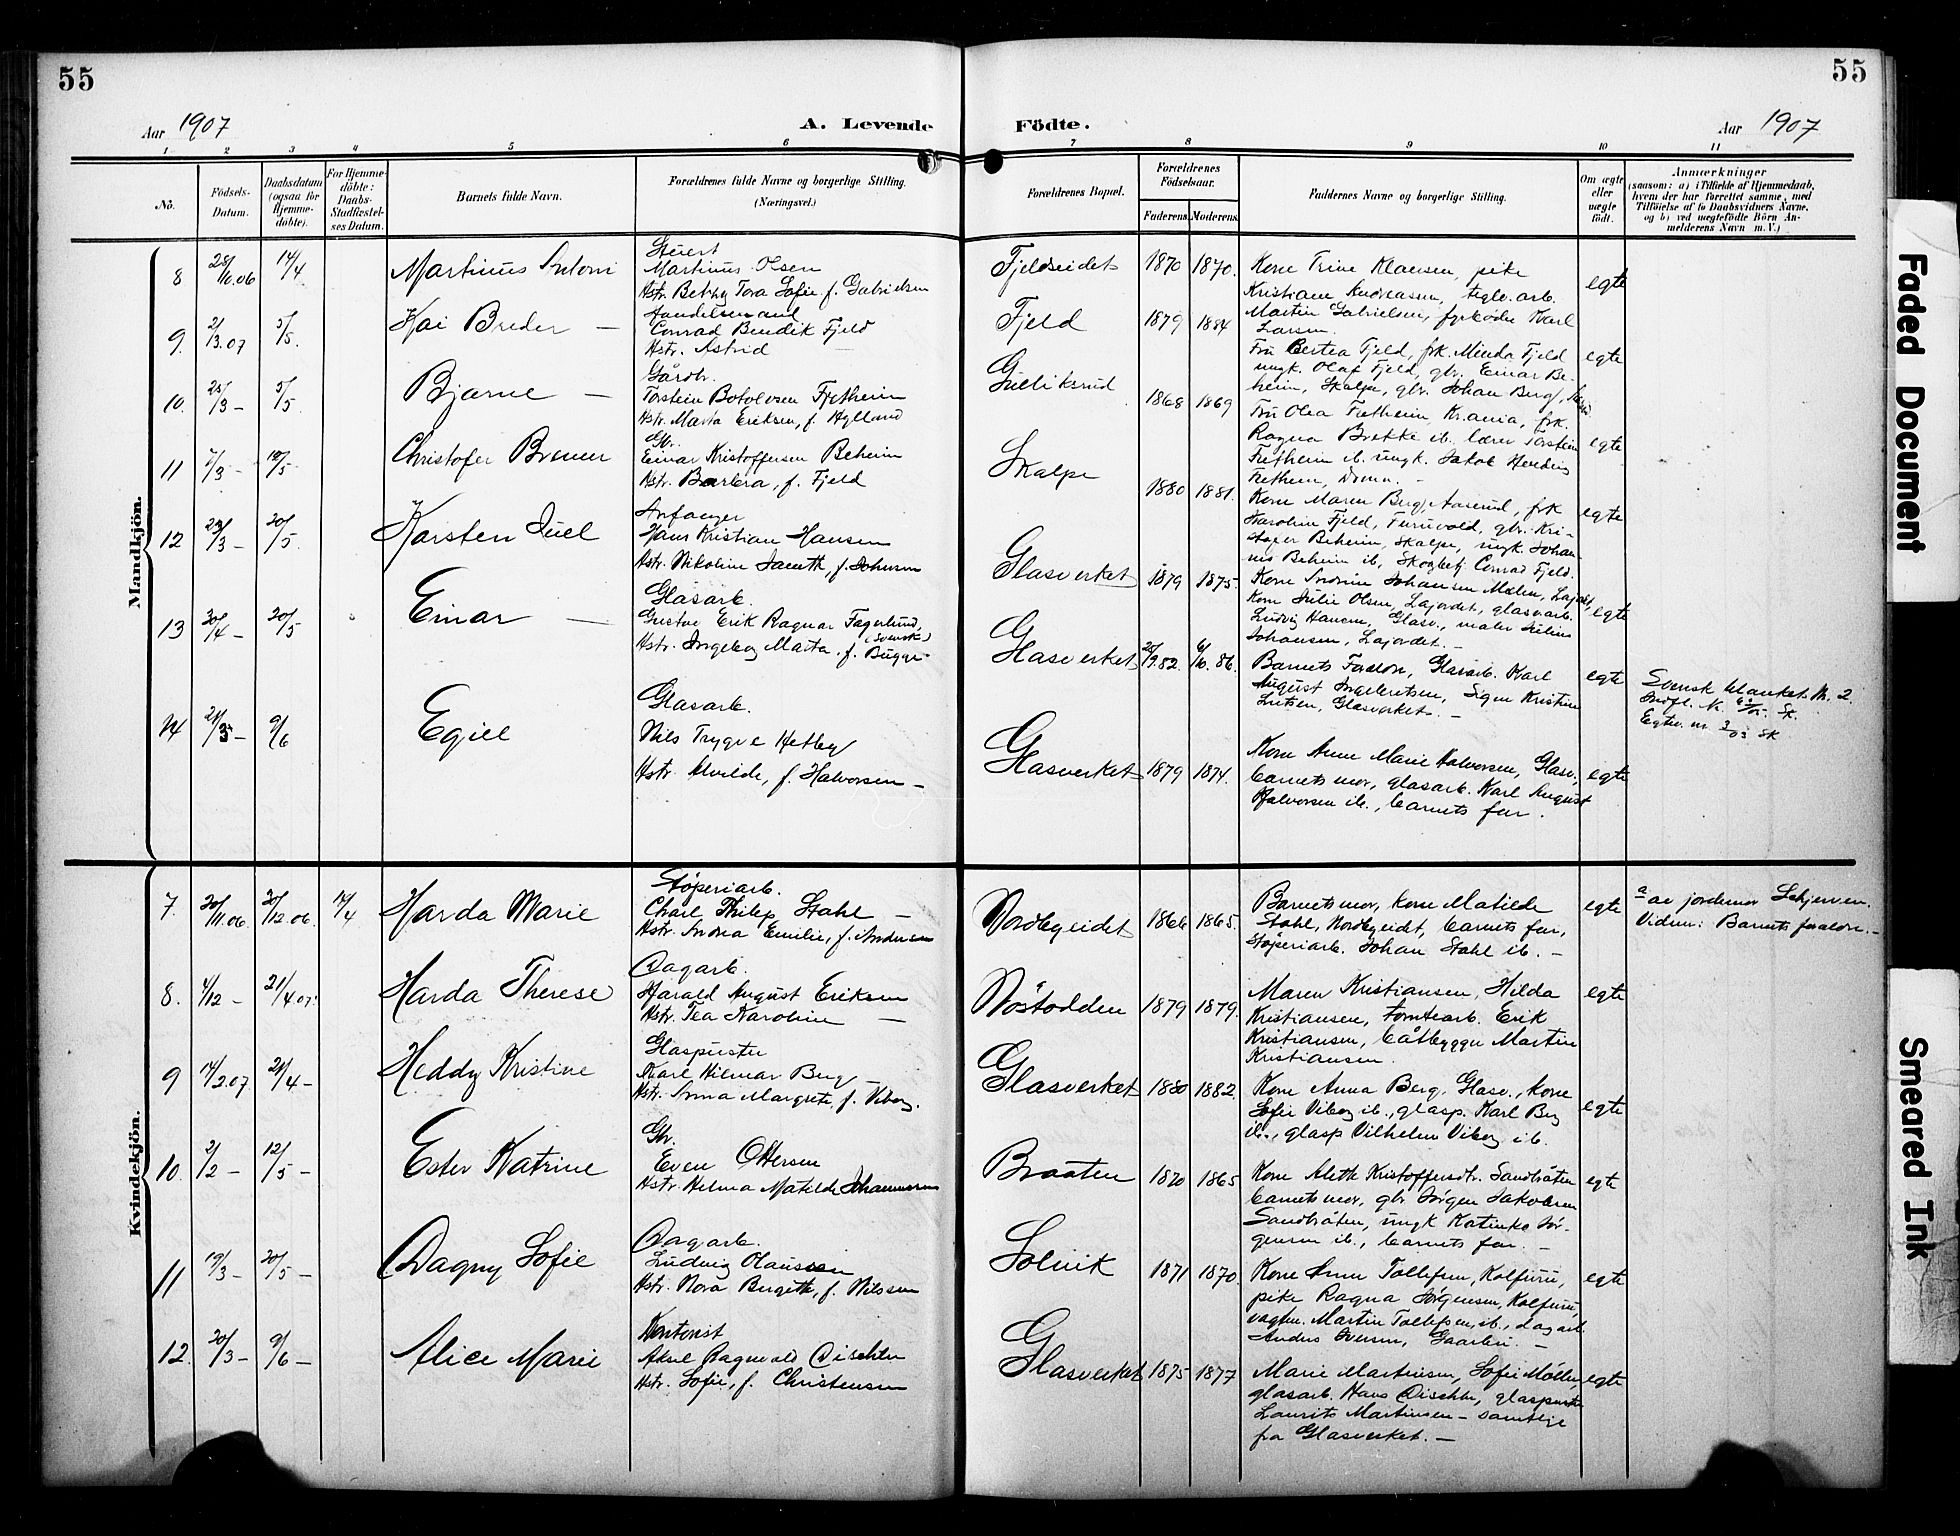 55
55
Aar 1907
A. Levende
Födte.
Aar 1907
1 2 3 4 5 6 7 8 9 10 11
No.
Födsels-
Datum.
Daabsdatum
(ogsaa for
Hjemme-
döbte).
For Hjemme-
döbte:
Daabs-
Stadfæstel-
ses Datum.
Barnets fulde Navn.
Forældrenes fulde Navne og borgerlige Stilling.
(Næringsvei.)
Forældrenes Bopæl.
Forældrenes
Födselsaar.
Faderens. Moderens.
Faddernes Navne og borgerlige Stilling.
Om ægte
eller
uægte
födt.
Anmærkninger
(saasom: a) i Tilfælde af Hjemmedaab,
hvem der har forrettet samme, med
Tilföielse af to Daabsvidners Navne,
og b) ved uægtefödte Börn An-
melderens Navn m. V.)
Mandkjön.
8
14/4
Martinus Antoni
Stuert
Martinus Olsen
Hstr. Betzy Tora Sofie f. Gabrielsen
Fjeldseidet
1870 1870.
Kone Trine Klausen, pike
Kristiane Andreasen, teglv. arb.
Martin Gabrielsen, fyrbøder Karl
Larsen.
egte
9.
2/3.07
5/5.
Kai Breder —
Handelsmand
Conrad Bendik Fjeld
Hstr. Astrid —
Fjeld
1879 1884
Fru Bertea Fjeld, frk. Minda Fjeld
ungk. Olaf Fjeld, gbr. Einar Be-
heim, Skalpe, gbr. Johan Berg,
egte
10.
25/3 –
5/5
Bjarne —
Gårdbr.
Torstein Botolvsen Fretheim
Hstr. Marta Eriksen, f. Hylland
Gutiksrud
1868 1869
Fru Olea Fretheim, Kr.ania, frk.
Ragna Brekke ib. lærer Torstein
Fretheim ib. ungk. Jakob
Fretheim,
egte
11
7/3 –
12/5 –
Christofer Brenner
Gbr.
Einar Kristoffersen Beheim
Hstr. Barbra, f. Fjeld
Skalpe
1880 1881.
Kone Maren Berg, Aaserud, frk
Karoline Fjeld, Furuvold, gbr. Kri-
stofer Beheim, Skalpe, ungk. Johan-
nes Beheim ib, Skogbetj. Conrad Fjeld.
egte
12
20/5.
Karsten Juel
Hans Kristian Hansen
Hstr. Nikoline Janette, f. Johnsen
Glasverket
1879 1875.
Johansen Mælen, Løjordet,
Kone Julie Olsen, Løjordet, glasv.arb.
Ludvig Hansen, Glasv., maler Julius
Johansen, Løjordet. –
egte
13
30/4 –
20/5
Einar —
Glasarb.
Gustav Erik Ragnar Fagerlund,
(Svensk)
Hstr. Ingeborg Marta, f. Bugge
Glasverket
Barnets Foreldre, Glasarb. Karl
August Ingebretsen, Signe Kristine
Glasverket. –
egte
Svensk blanket N. 2
14
9/6
Egill
Glasarb.
Nils Trygve Hetby
Hstr. Alvilde, f. Halvorsen –
Glasverket
1879 1874.
Kone Anne Marie Halvorsen, Glasv.,
barnets mor, glasarb. Karl August
Halvorsen ib., barnets far.
egte
Kvindekjön.
7.
30/11.06
30/12.06.
14/4
Harda Marie
Støperiarb.
Charl. Philip Stahl –
Hstr. Andrea Emilie, f. Andersen
Nordbyeidet
1866 1865.
Barnets mor, kone Matilde
Stahl, Nordbyeidet, barnets far,
Støperiarb. Johan Stahl ib. –
egte
a av jordemor Schjerven.
Vidner: Barnets foreldre. –
8.
4/12 –
21/4 07.
Harda Therese
Dagarb.
Harald August Eriksen
Hstr. Tea Karoline —
Nøstodden
1879 1879.
Maren Kristiansen, Hilda
Kristiansen, Tomtearb. Erik
Kristiansen, båtbygger Martin
Kristiansen.
egte
9
14/2.07.
21/4 –
Heddy Kristine
Glaspuster
Karl Hilmar Berg –
Hstr. Anna Margrete, f. Viborg.
Glasverket
1880 1882.
Kone Anna Berg, Glasv., kone
Sofie Viborg ib., glasp. Karl Berg
ib., glasp Vilhelm Viborg ib.
egte
10.
2/2 –
12/5 –
Ester Katrine
Gbr.
Even Ottersen
Hstr. Helma Matilde Johannesen
Braaten
1870 1865
Kone Aleth Kristoffersdtr. Sandbråten
barnets mor, gbr Jørgen Jakobsen
Sandbråten, ungk Katinka Jør-
gensen ib., barnets far. –
egte
11
19/3 –
20/5 –
Dagny Sofie
Dagarb.
Ludvig Olaussen
Hstr. Nora Birgitte, f. Nilssen
Solvik
1871 1870
Kone Anne Tollefsen, Kolfuru,
pike Ragna Jørgensen, Kolfuru,
vagtm. Martin Tollefsen, ib., dagarb.
Anders Iversen, –
egte
12.
20/3 –
9/6 –
Alice Marie
Kontorist
Aksel Ragnvald Dischler
Hstr. Sofie, f. Christensen
Glasverket
1875 1877
Marie Martinsen, Sofie Møller,
glasarb. Hans Dischler, glaspuster
Laurits Martinsen – samtlige
fra Glasverket. –
egte
Faded Document
Smeared Ink